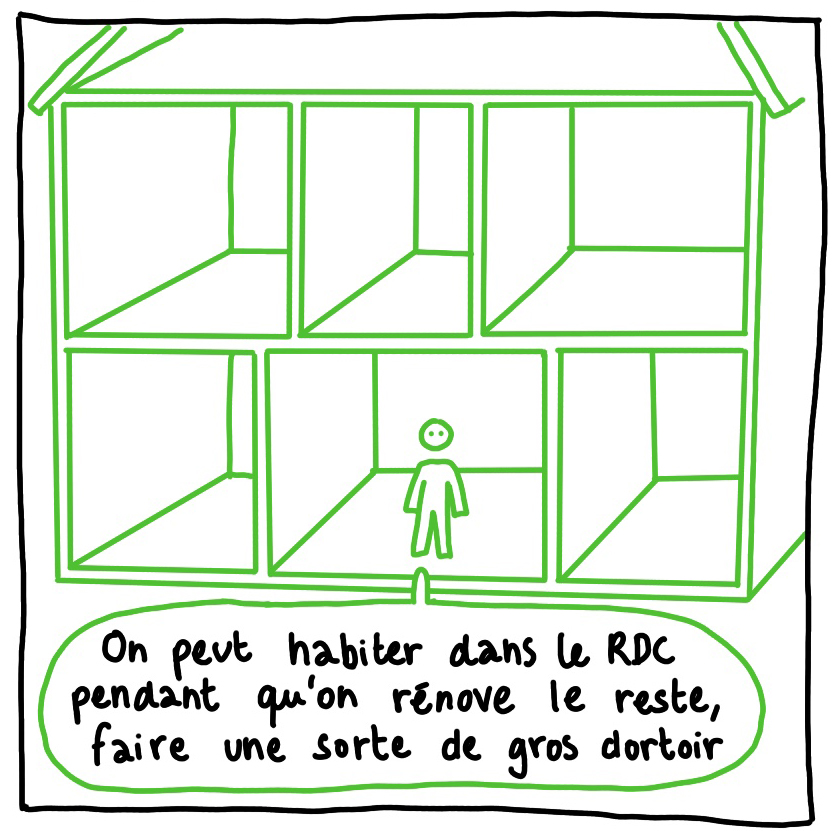 On peut habiter dans le RDC
pendant qu'on rénove le reste,
faire une sorte de gros dortoir